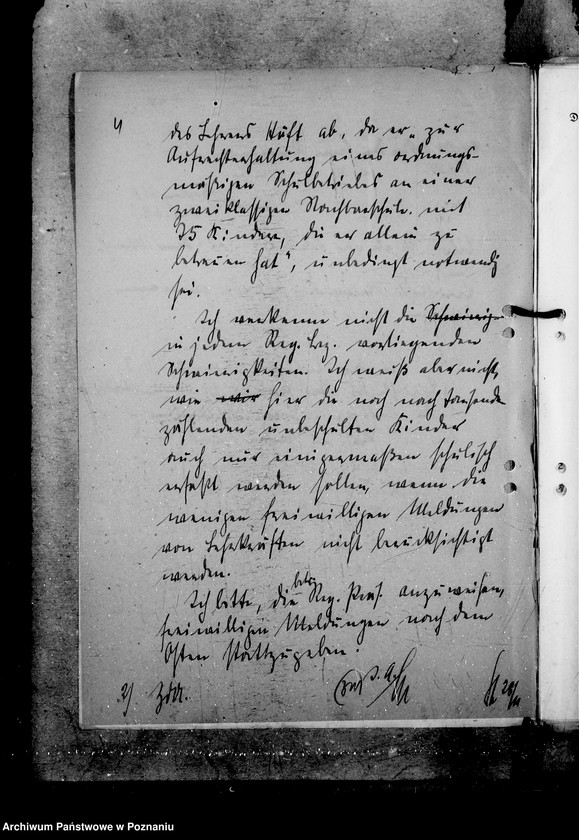 des Lehrers Kuft ab, da er „zur
Aufrechterhaltung eines ordnungs-
mäßigen Schulbetriebes an einer
zweiklassigen Nachbarschule mit
75 Kindern, die er allein zu
betreuen hat", unbedingt notwendig
sei.
Ich verkenne nicht die Schwierig-
in jedem Reg. Bez. vorliegenden
Schwierigkeiten. Ich weiß aber nicht,
wie wir hier die noch nach Tausende
zählenden unbeschulten Kinder
auch nur einigermaßen schulisch
erfaßt werden sollen, wenn die
wenigen freiwilligen Meldungen
von Lehrkräften nicht berücksichtigt
werden.
Ich bitte, die betr. Reg. Präs. anzuweisen,
freiwilligen Meldungen nach dem
Osten stattzugeben.
2) ZdA.
Archiwum Państwowe w Poznaniu